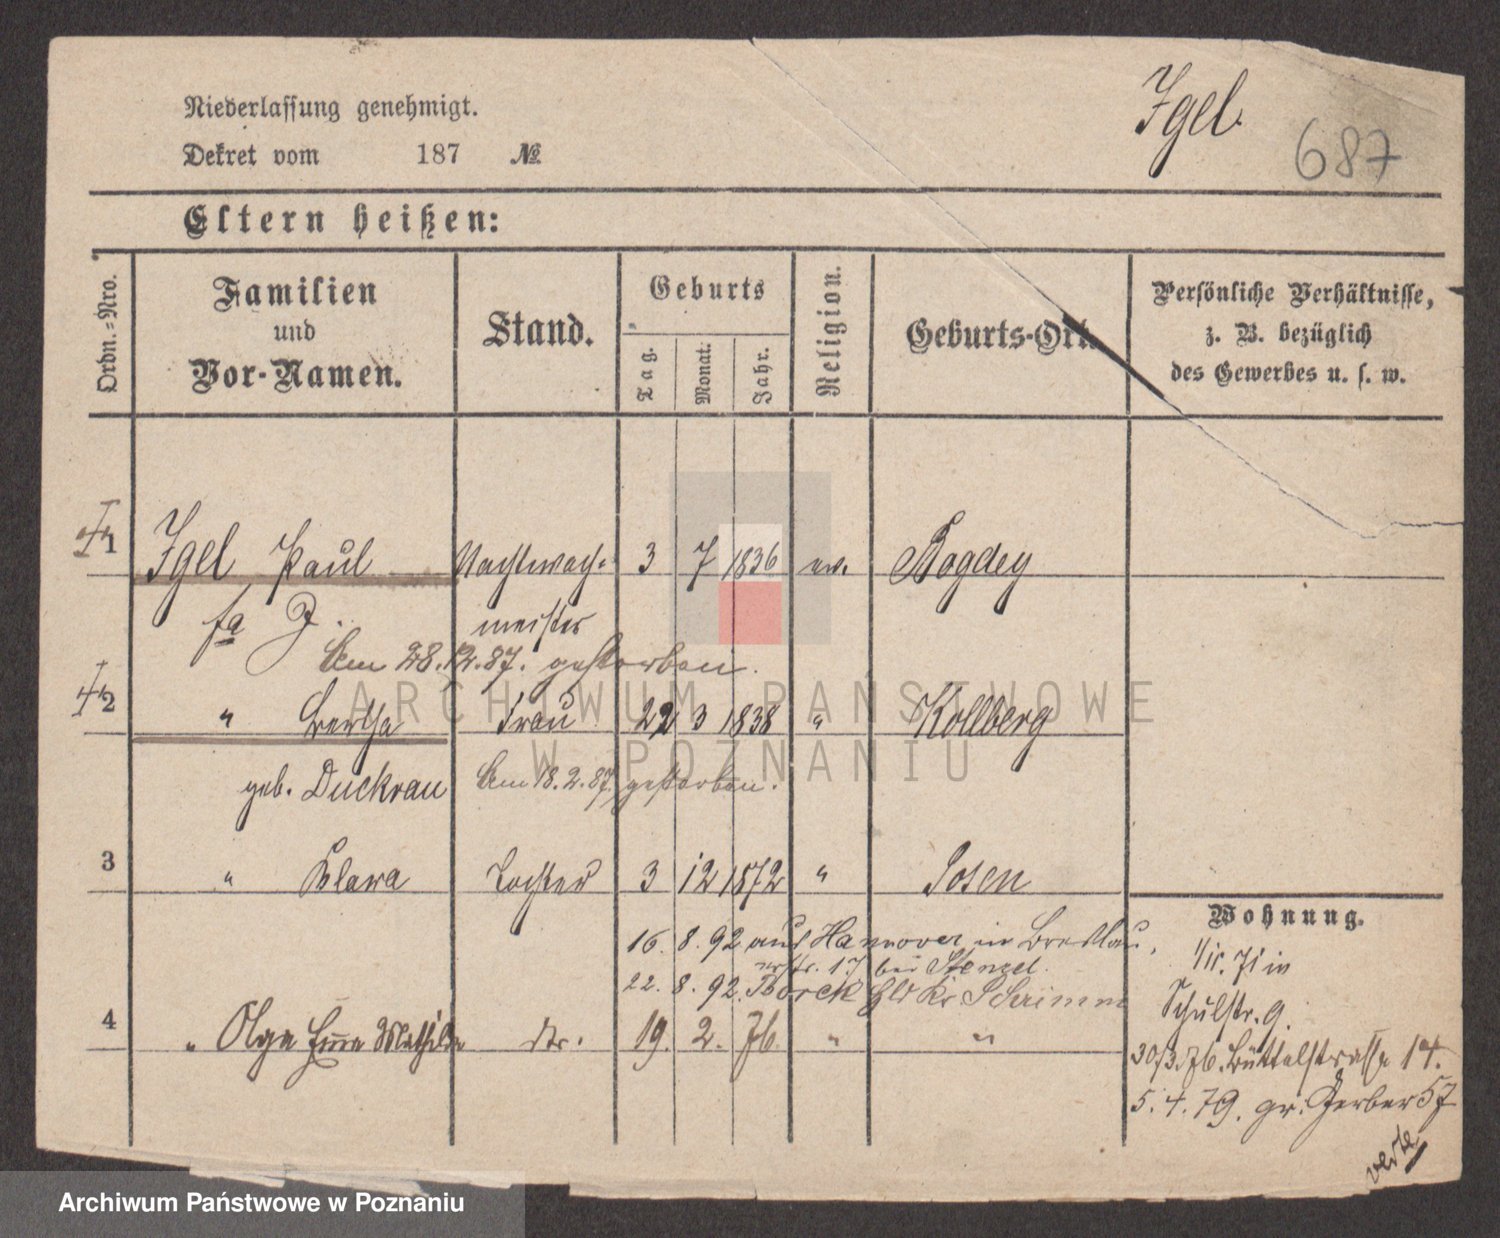 Igel.
687
Niederlassung genehmigt.
Dekret vom 187 №
Eltern heißen:
Ordn.-Nro.
Familien und Vor-Namen.
Stand.
Geburts
Tag.
Monat.
Jahr.
Religion.
Geburts-Ort.
Persönliche Verhältnisse,
z. B. bezüglich
des Gewerbes u. s. w.
1 Igel Paul Nachtwach- 3 7 1836 ev. Bogdey
meister
Am 28.12.87. gestorben.
2 " Bertha Frau 22 3 1838 " Kollberg
geb. Duckrau Am 18.2.87. gestorben.
3 " Klara Tochter 3 12 1872 " Posen
Wohnung.
16. 8. 92 auf Hannover in Breslau,
str. 17 bei Stenzel.
22. 8. 92. Borck Kr Schrimm
4 " Olga Emma Mathilde dto. 19. 2. 76. " "
1/11. 71 in
Schulstr. 9.
30/3.76. Büttelstrasse 14.
5. 4. 79. gr. Gerber 57
verte
ARCHIWUM PAŃSTWOWE
W POZNANIU
Archiwum Państwowe w Poznaniu